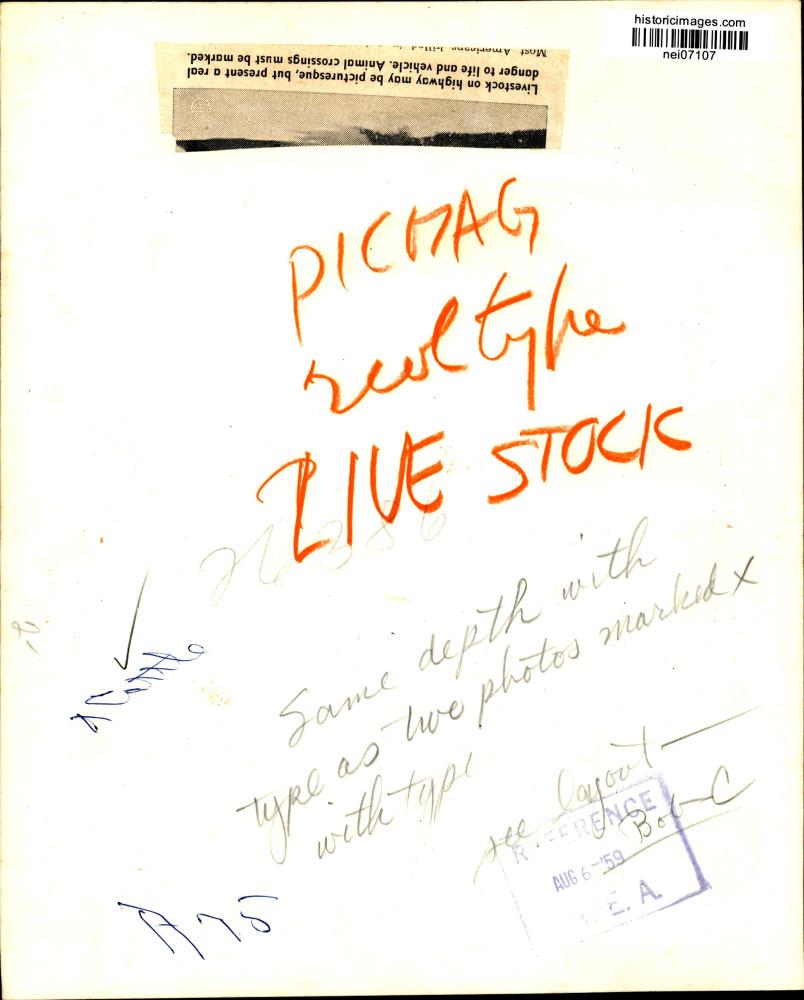 historicimages.com
nei07107
Livestock on highway may be picturesque, but, present a real
danger to life and vehicle. Animal crossings must be marked.
Most Americans killed
PICMAG
type
LIVE STOCK
Same depth with
type as two photos marked X
with type
see layout —
Bob C
REFERENCE
AUG 6-'59
E. A.
Cattle
A 75